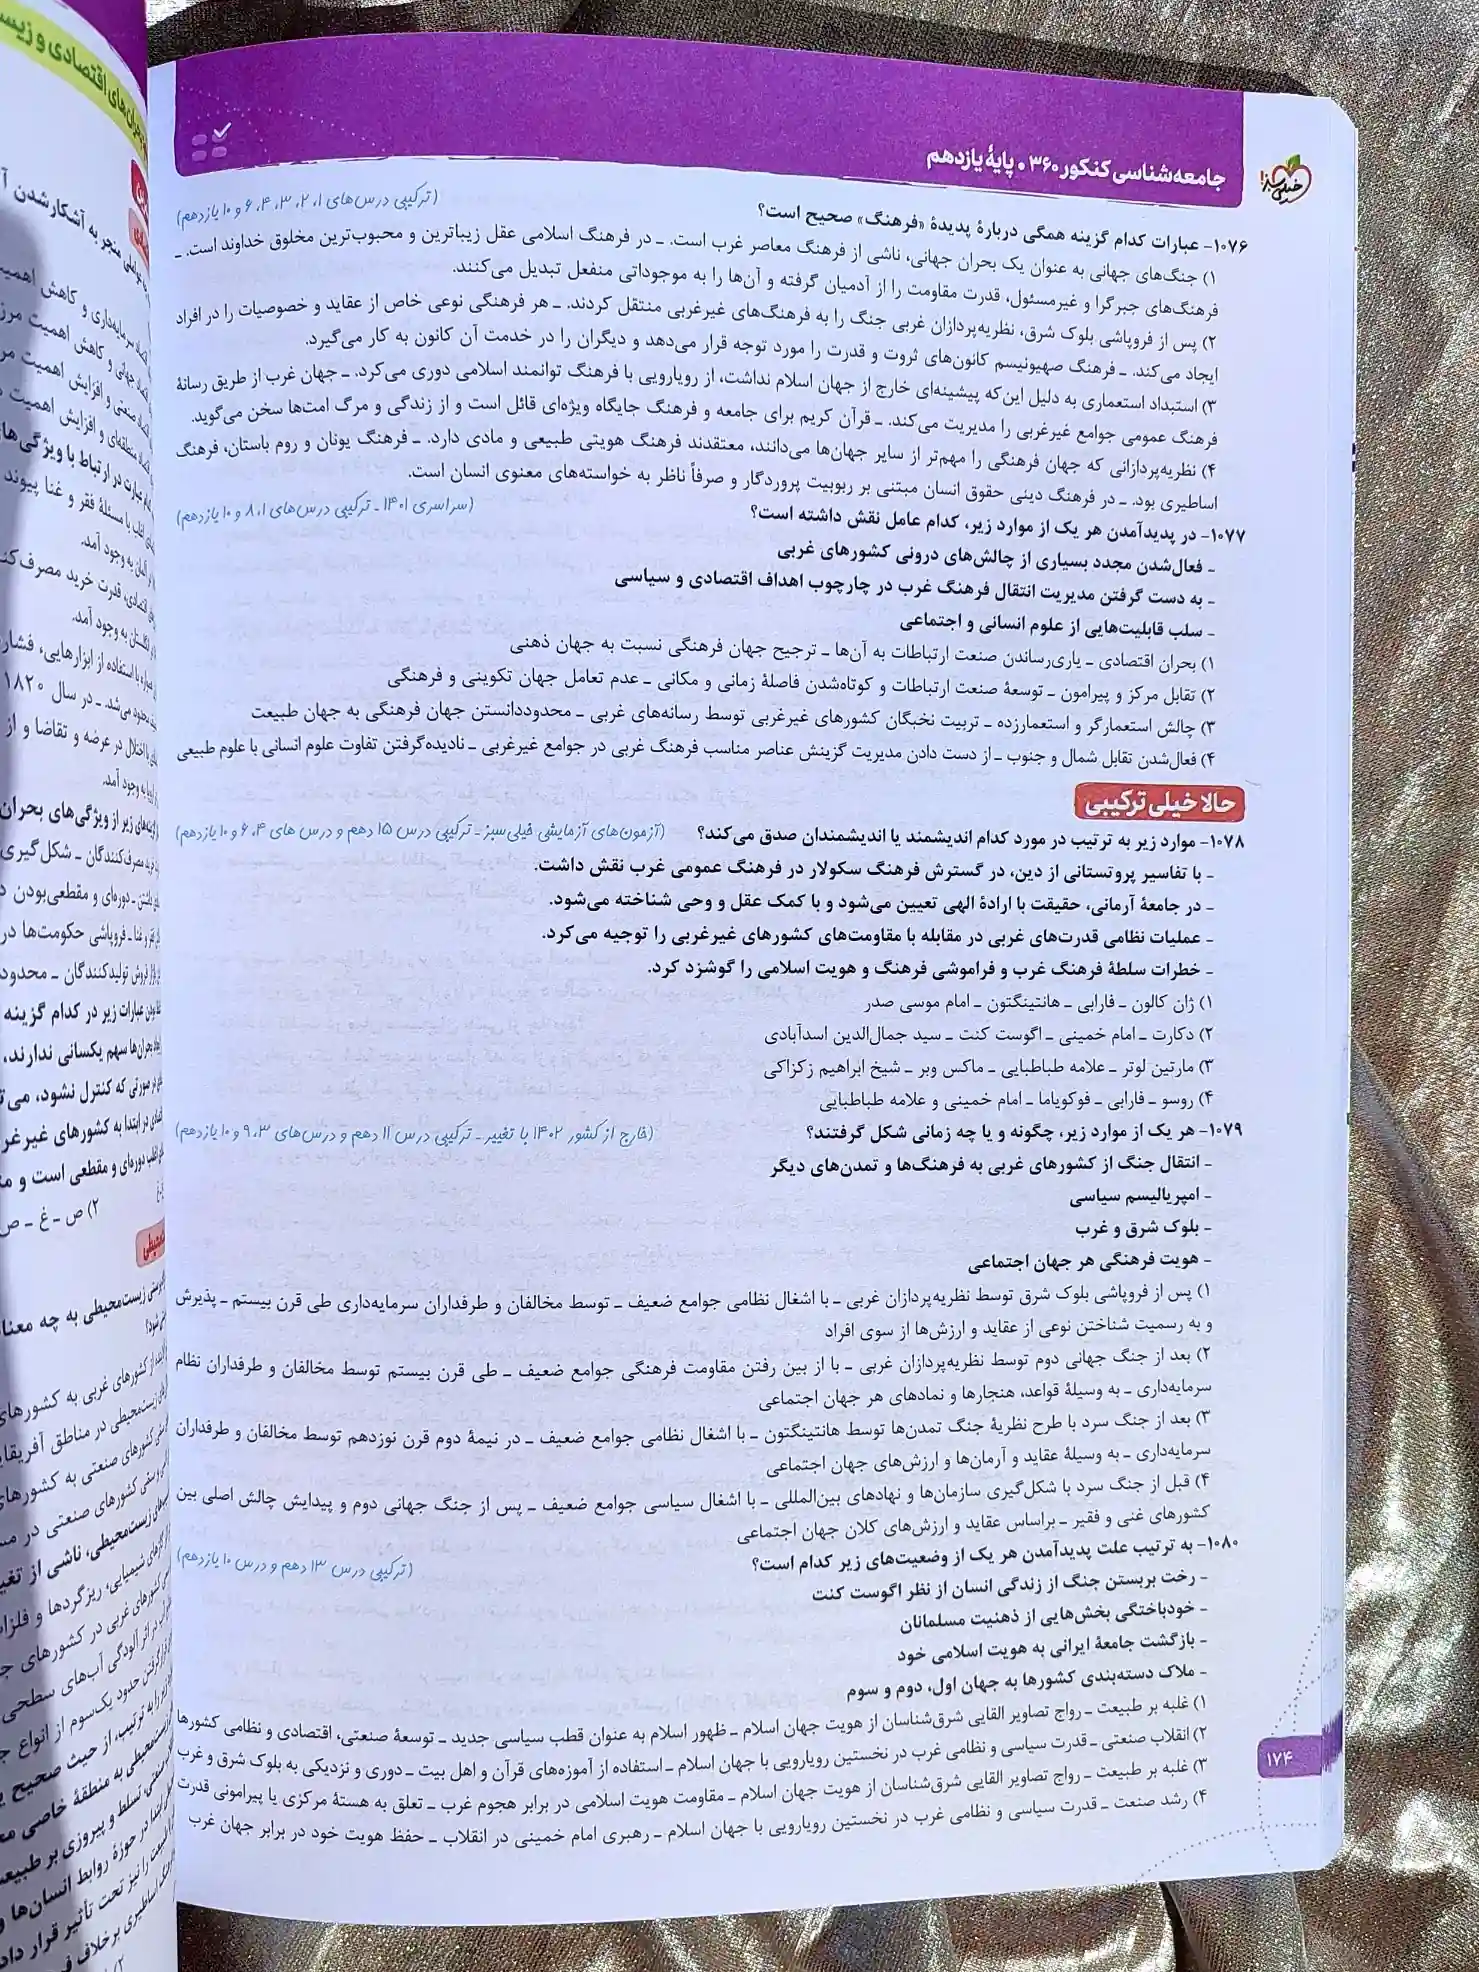 خیلی سبز
جامعه‌شناسی کنکور ۳۶۰ • پایهٔ یازدهم
۱۰۷۶- عبارات کدام گزینه همگی دربارهٔ پدیدهٔ «فرهنگ» صحیح است؟ (ترکیبی درس‌های ۱، ۲، ۳، ۴، ۶ و ۱۰ یازدهم)
۱) جنگ‌های جهانی به عنوان یک بحران جهانی، ناشی از فرهنگ معاصر غرب است. ـ در فرهنگ اسلامی عقل زیباترین و محبوب‌ترین مخلوق خداوند است. ـ
فرهنگ‌های جبرگرا و غیرمسئول، قدرت مقاومت را از آدمیان گرفته و آن‌ها را به موجوداتی منفعل تبدیل می‌کنند.
۲) پس از فروپاشی بلوک شرق، نظریه‌پردازان غربی جنگ را به فرهنگ‌های غیرغربی منتقل کردند. ـ هر فرهنگی نوعی خاص از عقاید و خصوصیات را در افراد
ایجاد می‌کند. ـ فرهنگ صهیونیسم کانون‌های ثروت و قدرت را مورد توجه قرار می‌دهد و دیگران را در خدمت آن کانون به کار می‌گیرد.
۳) استبداد استعماری به دلیل این‌که پیشینه‌ای خارج از جهان اسلام نداشت، از رویارویی با فرهنگ توانمند اسلامی دوری می‌کرد. ـ جهان غرب از طریق رسانهٔ
فرهنگ عمومی جوامع غیرغربی را مدیریت می‌کند. ـ قرآن کریم برای جامعه و فرهنگ جایگاه ویژه‌ای قائل است و از زندگی و مرگ امت‌ها سخن می‌گوید.
۴) نظریه‌پردازانی که جهان فرهنگی را مهم‌تر از سایر جهان‌ها می‌دانند، معتقدند فرهنگ هویتی طبیعی و مادی دارد. ـ فرهنگ یونان و روم باستان، فرهنگ
اساطیری بود. ـ در فرهنگ دینی حقوق انسان مبتنی بر ربوبیت پروردگار و صرفاً ناظر به خواسته‌های معنوی انسان است.
۱۰۷۷- در پدیدآمدن هر یک از موارد زیر، کدام عامل نقش داشته است؟ (سراسری ۱۴۰۱ ـ ترکیبی درس‌های ۱، ۸ و ۱۰ یازدهم)
- فعال‌شدن مجدد بسیاری از چالش‌های درونی کشورهای غربی
- به دست گرفتن مدیریت انتقال فرهنگ غرب در چارچوب اهداف اقتصادی و سیاسی
- سلب قابلیت‌هایی از علوم انسانی و اجتماعی
۱) بحران اقتصادی ـ یاری‌رساندن صنعت ارتباطات به آن‌ها ـ ترجیح جهان فرهنگی نسبت به جهان ذهنی
۲) تقابل مرکز و پیرامون ـ توسعهٔ صنعت ارتباطات و کوتاه‌شدن فاصلهٔ زمانی و مکانی ـ عدم تعامل جهان تکوینی و فرهنگی
۳) چالش استعمارگر و استعمارزده ـ تربیت نخبگان کشورهای غیرغربی توسط رسانه‌های غربی ـ محدوددانستن جهان فرهنگی به جهان طبیعت
۴) فعال‌شدن تقابل شمال و جنوب ـ از دست دادن مدیریت گزینش عناصر مناسب فرهنگ غربی در جوامع غیرغربی ـ نادیده‌گرفتن تفاوت علوم انسانی با علوم طبیعی
حالا خیلی ترکیبی
۱۰۷۸- موارد زیر به ترتیب در مورد کدام اندیشمند یا اندیشمندان صدق می‌کند؟ (آزمون‌های آزمایشی خیلی‌سبز ـ ترکیبی درس ۱۵ دهم و درس های ۴، ۶ و ۱۰ یازدهم)
- با تفاسیر پروتستانی از دین، در گسترش فرهنگ سکولار در فرهنگ عمومی غرب نقش داشت.
- در جامعهٔ آرمانی، حقیقت با ارادهٔ الهی تعیین می‌شود و با کمک عقل و وحی شناخته می‌شود.
- عملیات نظامی قدرت‌های غربی در مقابله با مقاومت‌های کشورهای غیرغربی را توجیه می‌کرد.
- خطرات سلطهٔ فرهنگ غرب و فراموشی فرهنگ و هویت اسلامی را گوشزد کرد.
۱) ژان کالون ـ فارابی ـ هانتینگتون ـ امام موسی صدر
۲) دکارت ـ امام خمینی ـ اگوست کنت ـ سید جمال‌الدین اسدآبادی
۳) مارتین لوتر ـ علامه طباطبایی ـ ماکس وبر ـ شیخ ابراهیم زکزاکی
۴) روسو ـ فارابی ـ فوکویاما ـ امام خمینی و علامه طباطبایی
۱۰۷۹- هر یک از موارد زیر، چگونه و یا چه زمانی شکل گرفتند؟ (خارج از کشور ۱۴۰۲ با تغییر ـ ترکیبی درس ۱۱ دهم و درس‌های ۳، ۹ و ۱۰ یازدهم)
- انتقال جنگ از کشورهای غربی به فرهنگ‌ها و تمدن‌های دیگر
- امپریالیسم سیاسی
- بلوک شرق و غرب
- هویت فرهنگی هر جهان اجتماعی
۱) پس از فروپاشی بلوک شرق توسط نظریه‌پردازان غربی ـ با اشغال نظامی جوامع ضعیف ـ توسط مخالفان و طرفداران سرمایه‌داری طی قرن بیستم ـ پذیرش
و به رسمیت شناختن نوعی از عقاید و ارزش‌ها از سوی افراد
۲) بعد از جنگ جهانی دوم توسط نظریه‌پردازان غربی ـ با از بین رفتن مقاومت فرهنگی جوامع ضعیف ـ طی قرن بیستم توسط مخالفان و طرفداران نظام
سرمایه‌داری ـ به وسیلهٔ قواعد، هنجارها و نمادهای هر جهان اجتماعی
۳) بعد از جنگ سرد با طرح نظریهٔ جنگ تمدن‌ها توسط هانتینگتون ـ با اشغال نظامی جوامع ضعیف ـ در نیمهٔ دوم قرن نوزدهم توسط مخالفان و طرفداران
سرمایه‌داری ـ به وسیلهٔ عقاید و آرمان‌ها و ارزش‌های جهان اجتماعی
۴) قبل از جنگ سرد با شکل‌گیری سازمان‌ها و نهادهای بین‌المللی ـ با اشغال سیاسی جوامع ضعیف ـ پس از جنگ جهانی دوم و پیدایش چالش اصلی بین
کشورهای غنی و فقیر ـ براساس عقاید و ارزش‌های کلان جهان اجتماعی
۱۰۸۰- به ترتیب علت پدیدآمدن هر یک از وضعیت‌های زیر کدام است؟ (ترکیبی درس ۱۳ دهم و درس ۱۰ یازدهم)
- رخت بربستن جنگ از زندگی انسان از نظر اگوست کنت
- خودباختگی بخش‌هایی از ذهنیت مسلمانان
- بازگشت جامعهٔ ایرانی به هویت اسلامی خود
- ملاک دسته‌بندی کشورها به جهان اول، دوم و سوم
۱) غلبه بر طبیعت ـ رواج تصاویر القایی شرق‌شناسان از هویت جهان اسلام ـ ظهور اسلام به عنوان قطب سیاسی جدید ـ توسعهٔ صنعتی، اقتصادی و نظامی کشورها
۲) انقلاب صنعتی ـ قدرت سیاسی و نظامی غرب در نخستین رویارویی با جهان اسلام ـ استفاده از آموزه‌های قرآن و اهل بیت ـ دوری و نزدیکی به بلوک شرق و غرب
۳) غلبه بر طبیعت ـ رواج تصاویر القایی شرق‌شناسان از هویت جهان اسلام ـ مقاومت هویت اسلامی در برابر هجوم غرب ـ تعلق به هستهٔ مرکزی یا پیرامونی قدرت
۴) رشد صنعت ـ قدرت سیاسی و نظامی غرب در نخستین رویارویی با جهان اسلام ـ رهبری امام خمینی در انقلاب ـ حفظ هویت خود در برابر جهان غرب
۱۷۴